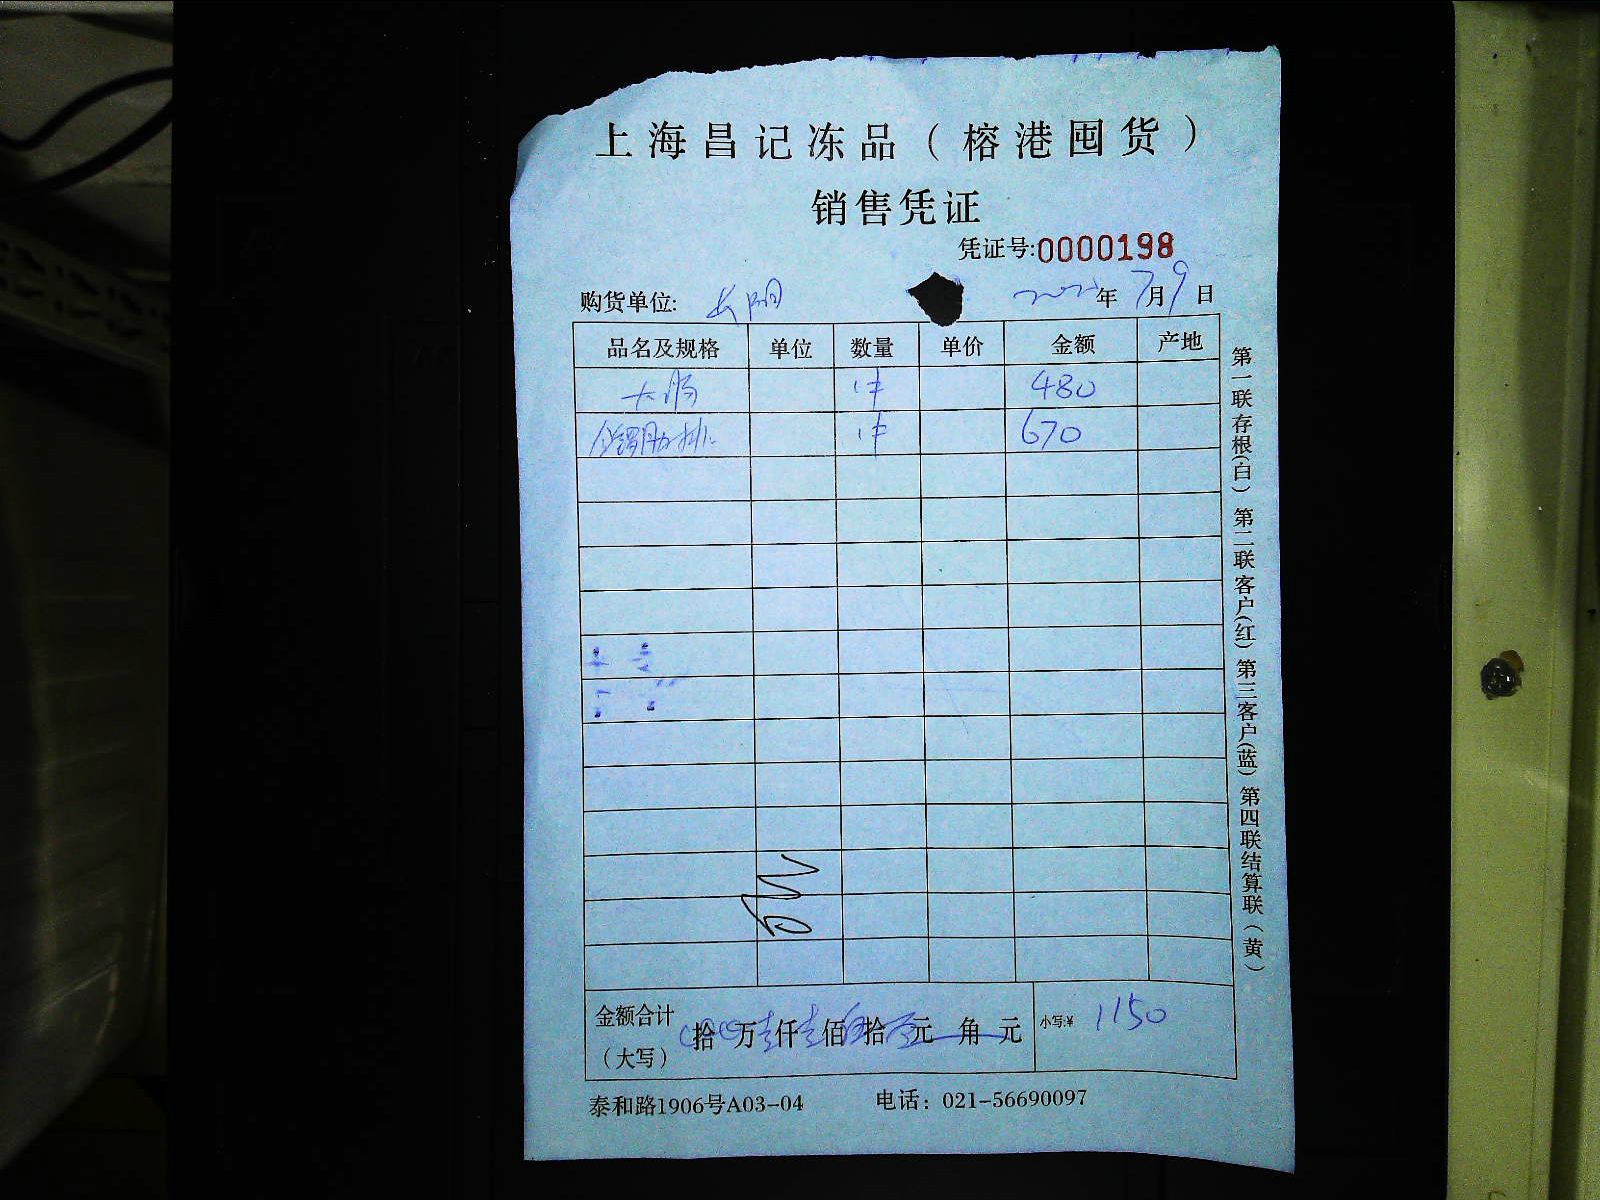 上海昌记冻品（榕港囤货）
销售凭证
凭证号:0000198
购货单位: 年7月9日
品名及规格 单位 数量 单价 金额 产地
大肠 1件 480
肋排 1件 670
金额合计（大写） 拾万壹仟壹佰伍拾元角元 小写:¥ 1150
泰和路1906号A03-04 电话：021-56690097
第一联存根（白）第二联客户（红）第三客户（蓝）第四联结算联（黄）